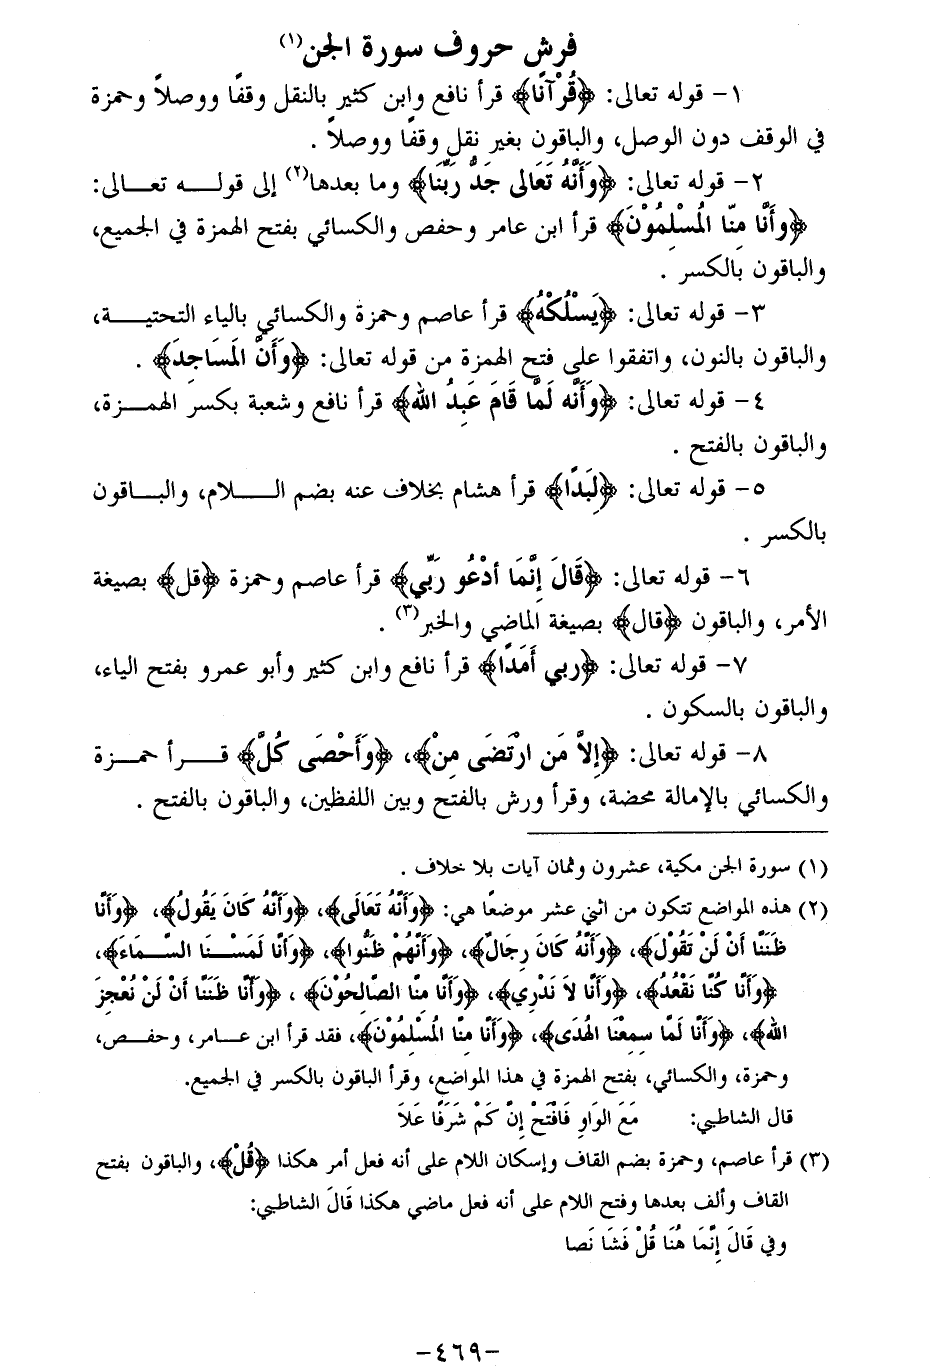 فرش حروف سورة الجن(١)
١- قوله تعالى: ﴿قُرْآنًا﴾ قرأ نافع وابن كثير بالنقل وقفًا ووصلاً وحمزة
في الوقف دون الوصل، والباقون بغير نقل وقفًا ووصلاً .
٢- قوله تعالى: ﴿وَأَنَّهُ تَعَالى جَدُّ رَبِّنَا﴾ وما بعدها(٢) إلى قولـه تعـالى:
﴿وأَنَّا مِنّا المُسْلِمُوْنَ﴾ قرأ ابن عامر وحفص والكسائي بفتح الهمزة في الجميع،
والباقون بالكسر .
٣- قوله تعالى: ﴿يَسْلُكْهُ﴾ قرأ عاصم وحمزة والكسائي بالياء التحتيـة،
والباقون بالنون، واتفقوا على فتح الهمزة من قوله تعالى: ﴿وَأَنَّ المَسَاجِدَ﴾ .
٤- قوله تعالى: ﴿وَأَنَّه لَمَّا قَامَ عَبدُ الله﴾ قرأ نافع وشعبة بكسر الهمـزة،
والباقون بالفتح .
٥- قوله تعالى: ﴿لِبَدًا﴾ قرأ هشام بخلاف عنه بضم الـلام، والبـاقون
بالكسر .
٦- قوله تعالى: ﴿قَالَ إِنَّمَا أدْعُو رَبِّي﴾ قرأ عاصم وحمزة ﴿قل﴾ بصيغة
الأمر، والباقون ﴿قال﴾ بصيغة الماضي والخبر(٣) .
٧- قوله تعالى: ﴿ربي أَمَدًا﴾ قرأ نافع وابن كثير وأبو عمرو بفتح الياء،
والباقون بالسكون .
٨- قوله تعالى: ﴿إلاَّ مَن ارْتَضَى مِنْ﴾، ﴿وَأَحْصَى كُلَّ﴾ قـرأ حمـزة
والكسائي بالإمالة محضة، وقرأ ورش بالفتح وبين اللفظين، والباقون بالفتح .
(١) سورة الجن مكية، عشرون وثمان آيات بلا خلاف .
(٢) هذه المواضع تتكون من اثني عشر موضعًا هي: ﴿وَأَنَّهُ تَعَالَى﴾، ﴿وَأَنَّهُ كَانَ يَقُولُ﴾، ﴿وَأَنَّا
ظَنَنَّا أَنْ لَنْ تَقُوْلَ﴾، ﴿وَأَنَّهُ كَانَ رِجَالٌ﴾، ﴿وَأَنَّهُمْ ظَنُّوا﴾، ﴿وَأَنَّا لَمَسْـنَا السَّـمَاءَ﴾،
﴿وَأَنَّا كُنَّا نَقْعُدُ﴾، ﴿وَأَنَّا لاَ نَدْرِي﴾، ﴿وَأَنَّا مِنَّا الصَّالِحُوْنَ﴾ ، ﴿وَأَنَّا ظَنَنَّا أَنْ لَنْ نُعْجِزَ
الله﴾، ﴿وَأَنَّا لَمَّا سَمِعْنَا الهُدَى﴾، ﴿وَأَنَّا مِنَّا المُسْلِمُوْنَ﴾، فقد قرأ ابن عـامر، وحفـص،
وحمزة، والكسائي، بفتح الهمزة في هذا المواضع، وقرأ الباقون بالكسر في الجميع.
قال الشاطبي: مَعَ الوَاوِ فَافْتَحْ إِنَّ كَمْ شَرَفًا عَلاَ
(٣) قرأ عاصم، وحمزة بضم القاف وإسكان اللام على أنه فعل أمر هكذا ﴿قُلْ﴾، والباقون بفتح
القاف وألف بعدها وفتح اللام على أنه فعل ماضي هكذا قَالَ الشاطبي:
وفي قَالَ إِنَّمَا هُنَا قُلْ فَشَا نَصا
-٤٦٩-